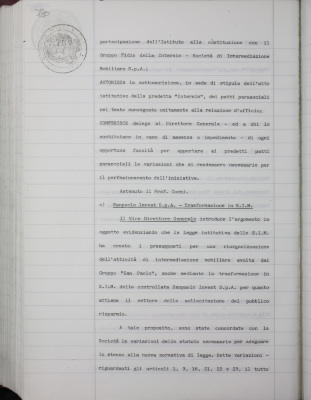 partecipazione dell'Istituto alla costituzione con il
Gruppo Fidis della Intersim - Società di Intermediazione
Mobiliare S.p.A.;
AUTORIZZA la sottoscrizione, in sede di stipula dell'atto
istitutivo della predetta "Intersim", dei patti parasociali
nel testo consegnato unitamente alla relazione d'ufficio;
CONFERISCE delega al Direttore Generale - ed a chi lo
sostituisce in caso di assenza o impedimento - di ogni
opportuna facoltà per apportare ai predetti patti
parasociali le variazioni che si rendessero necessarie per
il perfezionamento dell'iniziativa.
Astenuto il Prof.
Sanpaolo Invest S.p.A. - Trasformazione in S.I.M.
Il Vice Direttore Generale introduce l'argomento in
oggetto evidenziando che la legge istitutiva delle S.I.M.
ha creato i presupposti per una riorganizzazione
dell'attività di intermediazione mobiliare svolta dal
Gruppo "San Paolo", anche mediante la trasformazione in
S.I.M. della controllata Sanpaolo Invest S.p.A. per quanto
attiene il settore della sollecitazione del pubblico
risparmio.
A tale proposito, sono state concordate con la
Società le variazioni dello statuto necessarie per adeguare
lo stesso alla nuova normativa di legge. Dette variazioni -
riguardanti gli articoli 1, 3, 16, 21, 22 e 23, il tutto